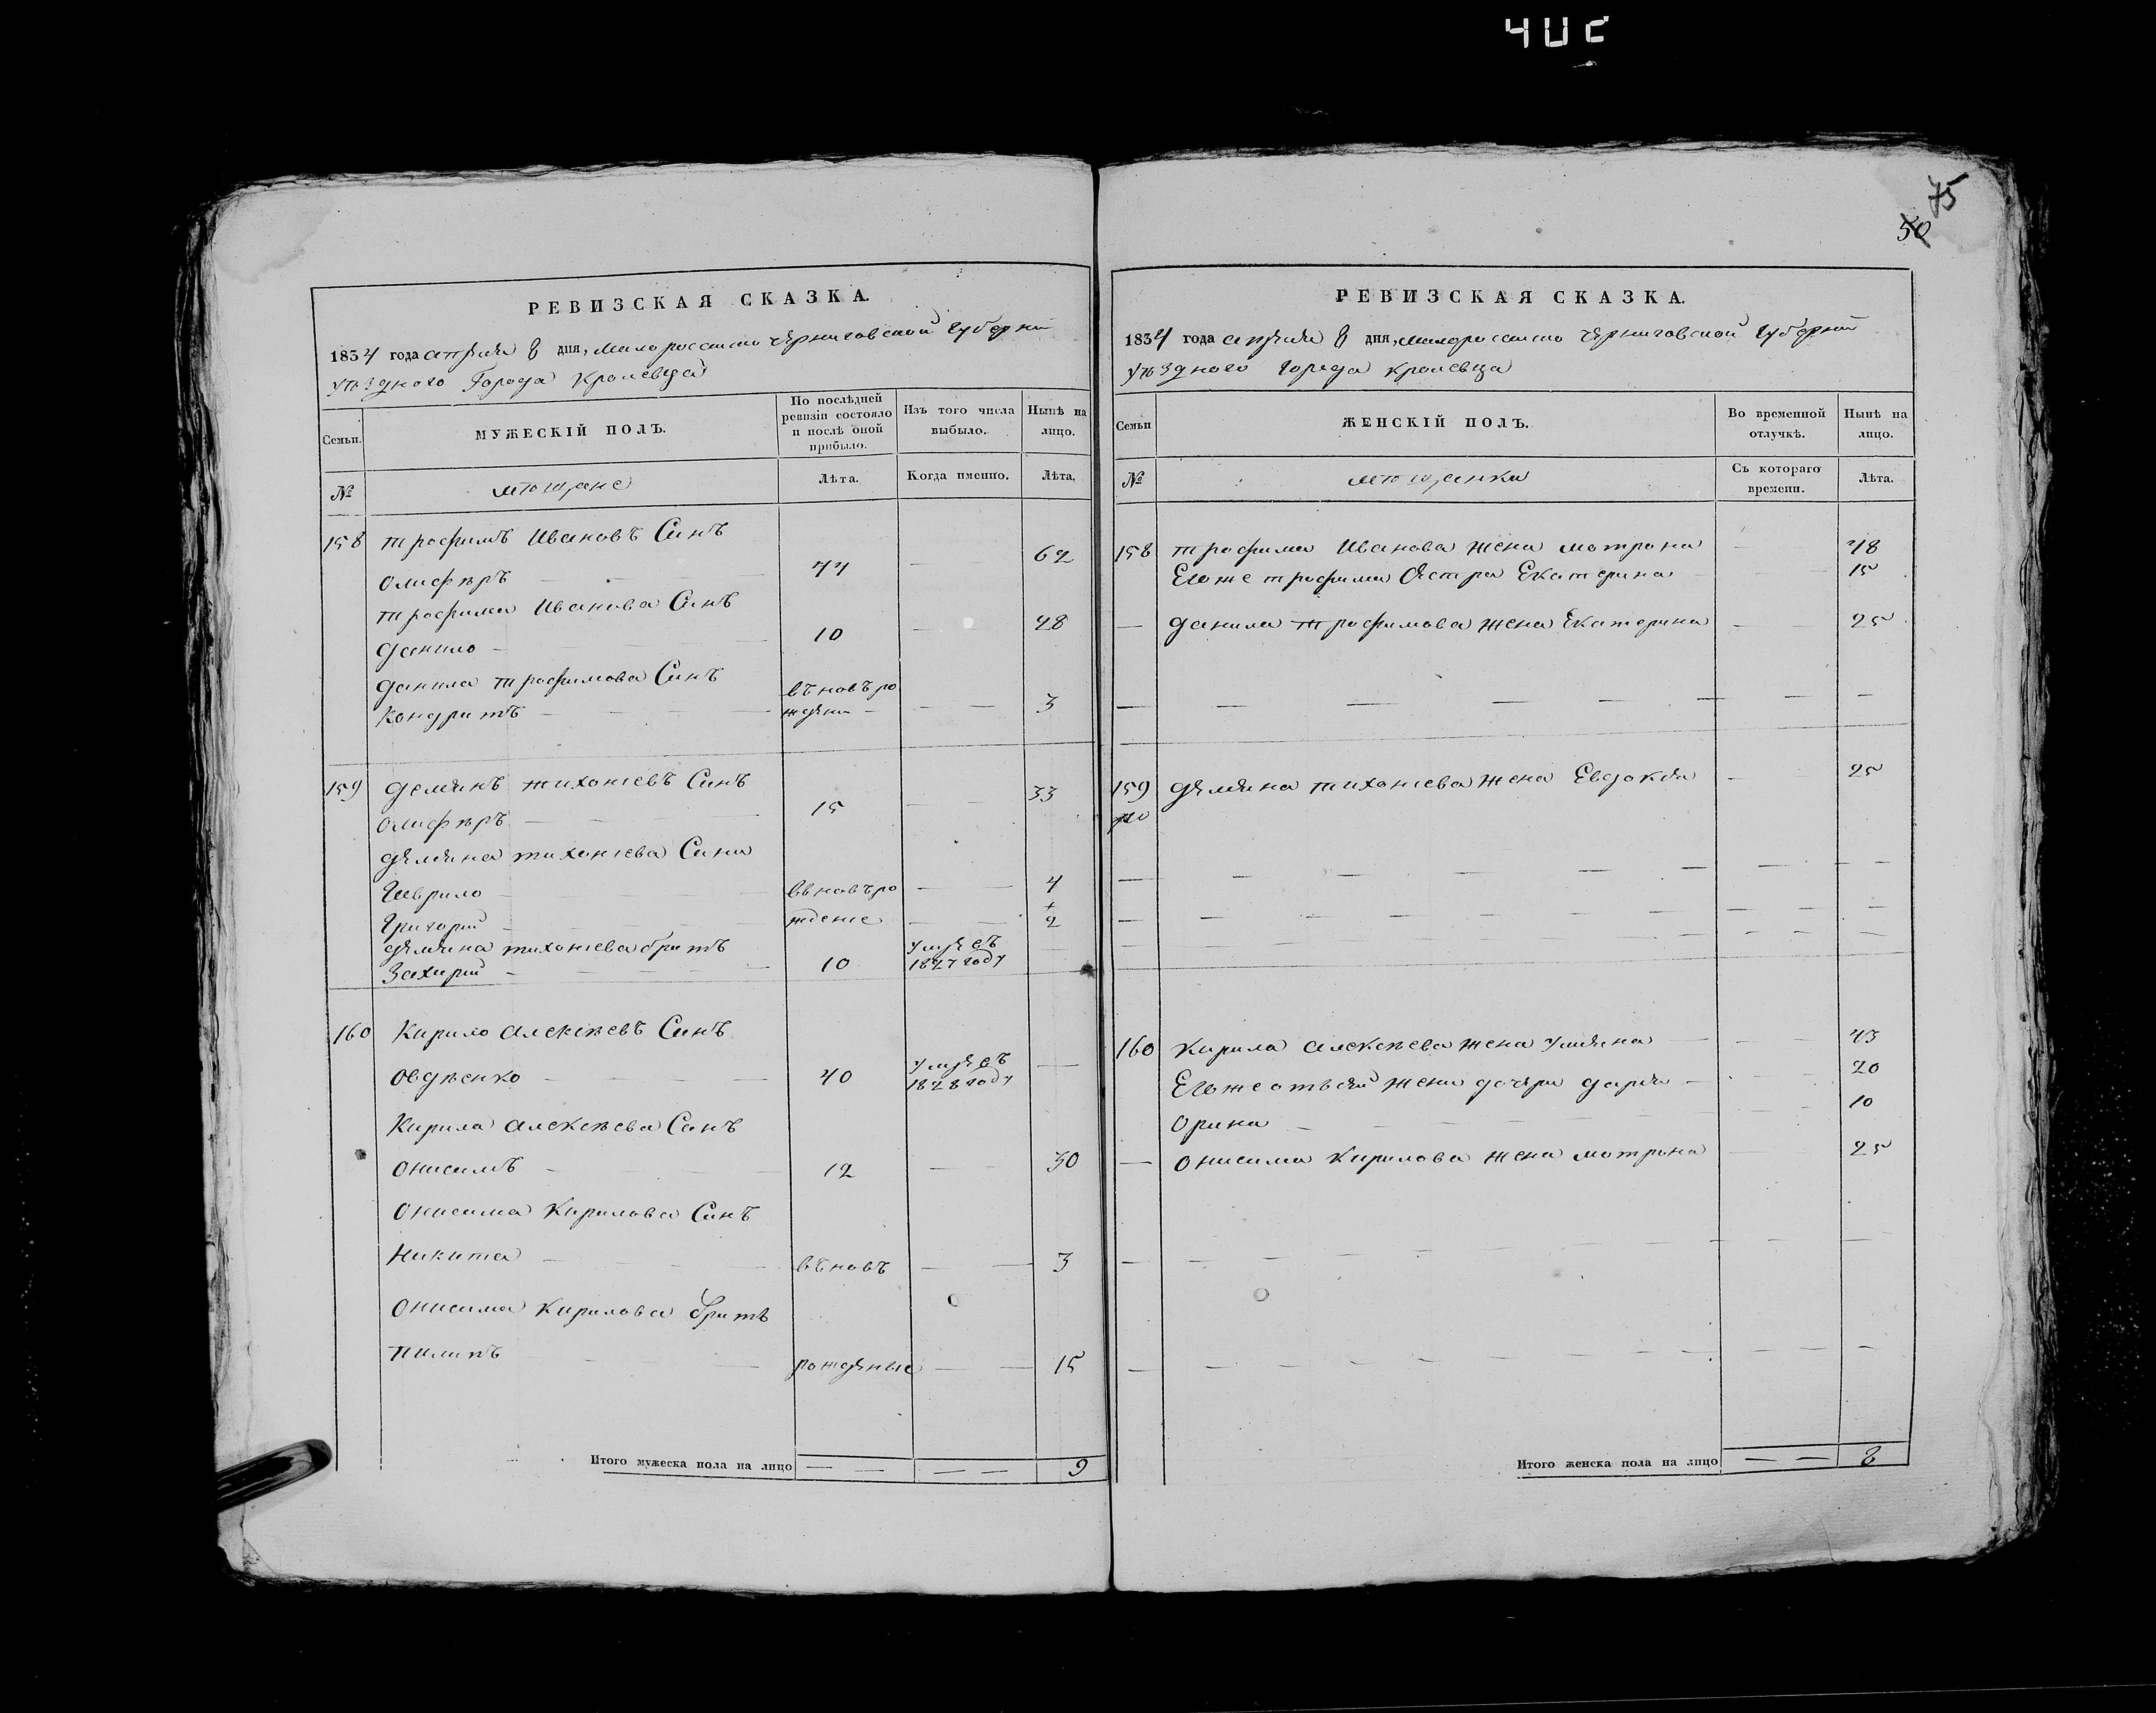 4UC
75
50
РЕВИЗСКАЯ СКАЗКА.
1834 года апреля 8 дня, малоросийско Черниговской Губернии
уѣздного Города Кролевца
Семьи.
МУЖЕСКІЙ ПОЛЪ.
По послѣдней ревизіи состояло и послѣ оной прибыло.
Изъ того числа выбыло.
Нынѣ на лицо.
№
мѣщане
Лѣта.
Когда именно.
Лѣта.
158 трофимъ Ивановъ Синъ
олифѣръ 44 62
трофима Иванова Синъ
данило 10 28
данила трофимова Синъ
Кондратъ въновъ рождени 3
159 демянъ тихониевъ Синъ
олифѣръ 15 33
демяна тихониева Сини
Гаврило вновъро 4
Григорий ждение 2
демяна тихониева братъ
Захарий 10 умре въ 1827 году
160 Кирило алексѣевъ Синъ
овдѣенко 40 умре въ 1828 году
Кирила алексѣева Синъ
онисимъ 12 30
онисима Кирилова Синъ
Никита въновъ 3
онисима Кирилова братъ
пилипъ рожденые 15
Итого мужеска пола на лицо 9
РЕВИЗСКАЯ СКАЗКА.
1834 года апреля 8 дня, малоросийско Черниговской Губернии
уѣздного города Кролевца
Семьи
ЖЕНСКІЙ ПОЛЪ.
Во временной отлучкѣ.
Нынѣ на лицо.
№
мѣщанки
Съ котораго времени.
Лѣта.
158 трофима Иванова жена мотрона 48
Егоже трофима Екатерина 15
данила трофимова жена Екатерина 25
159 демяна тихониева жена Евдокия 25
160 Кирила алексѣева жена улияна 43
Егоже жени дочери дария 20
орина 10
онисима Кирилова жена мотрона 25
Итого женска пола на лицо 8